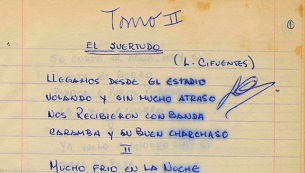 Tomo II
1
EL SUERTUDO
(L. CIFUENTES)
LLEGAMOS DESDE EL ESTADIO
VOLANDO Y SIN MUCHO ATRASO
NOS RECIBIERON CON BANDA
CARAMBA Y SU BUEN CHARCHASO
II
MUCHO FRIO EN LA NOCHE